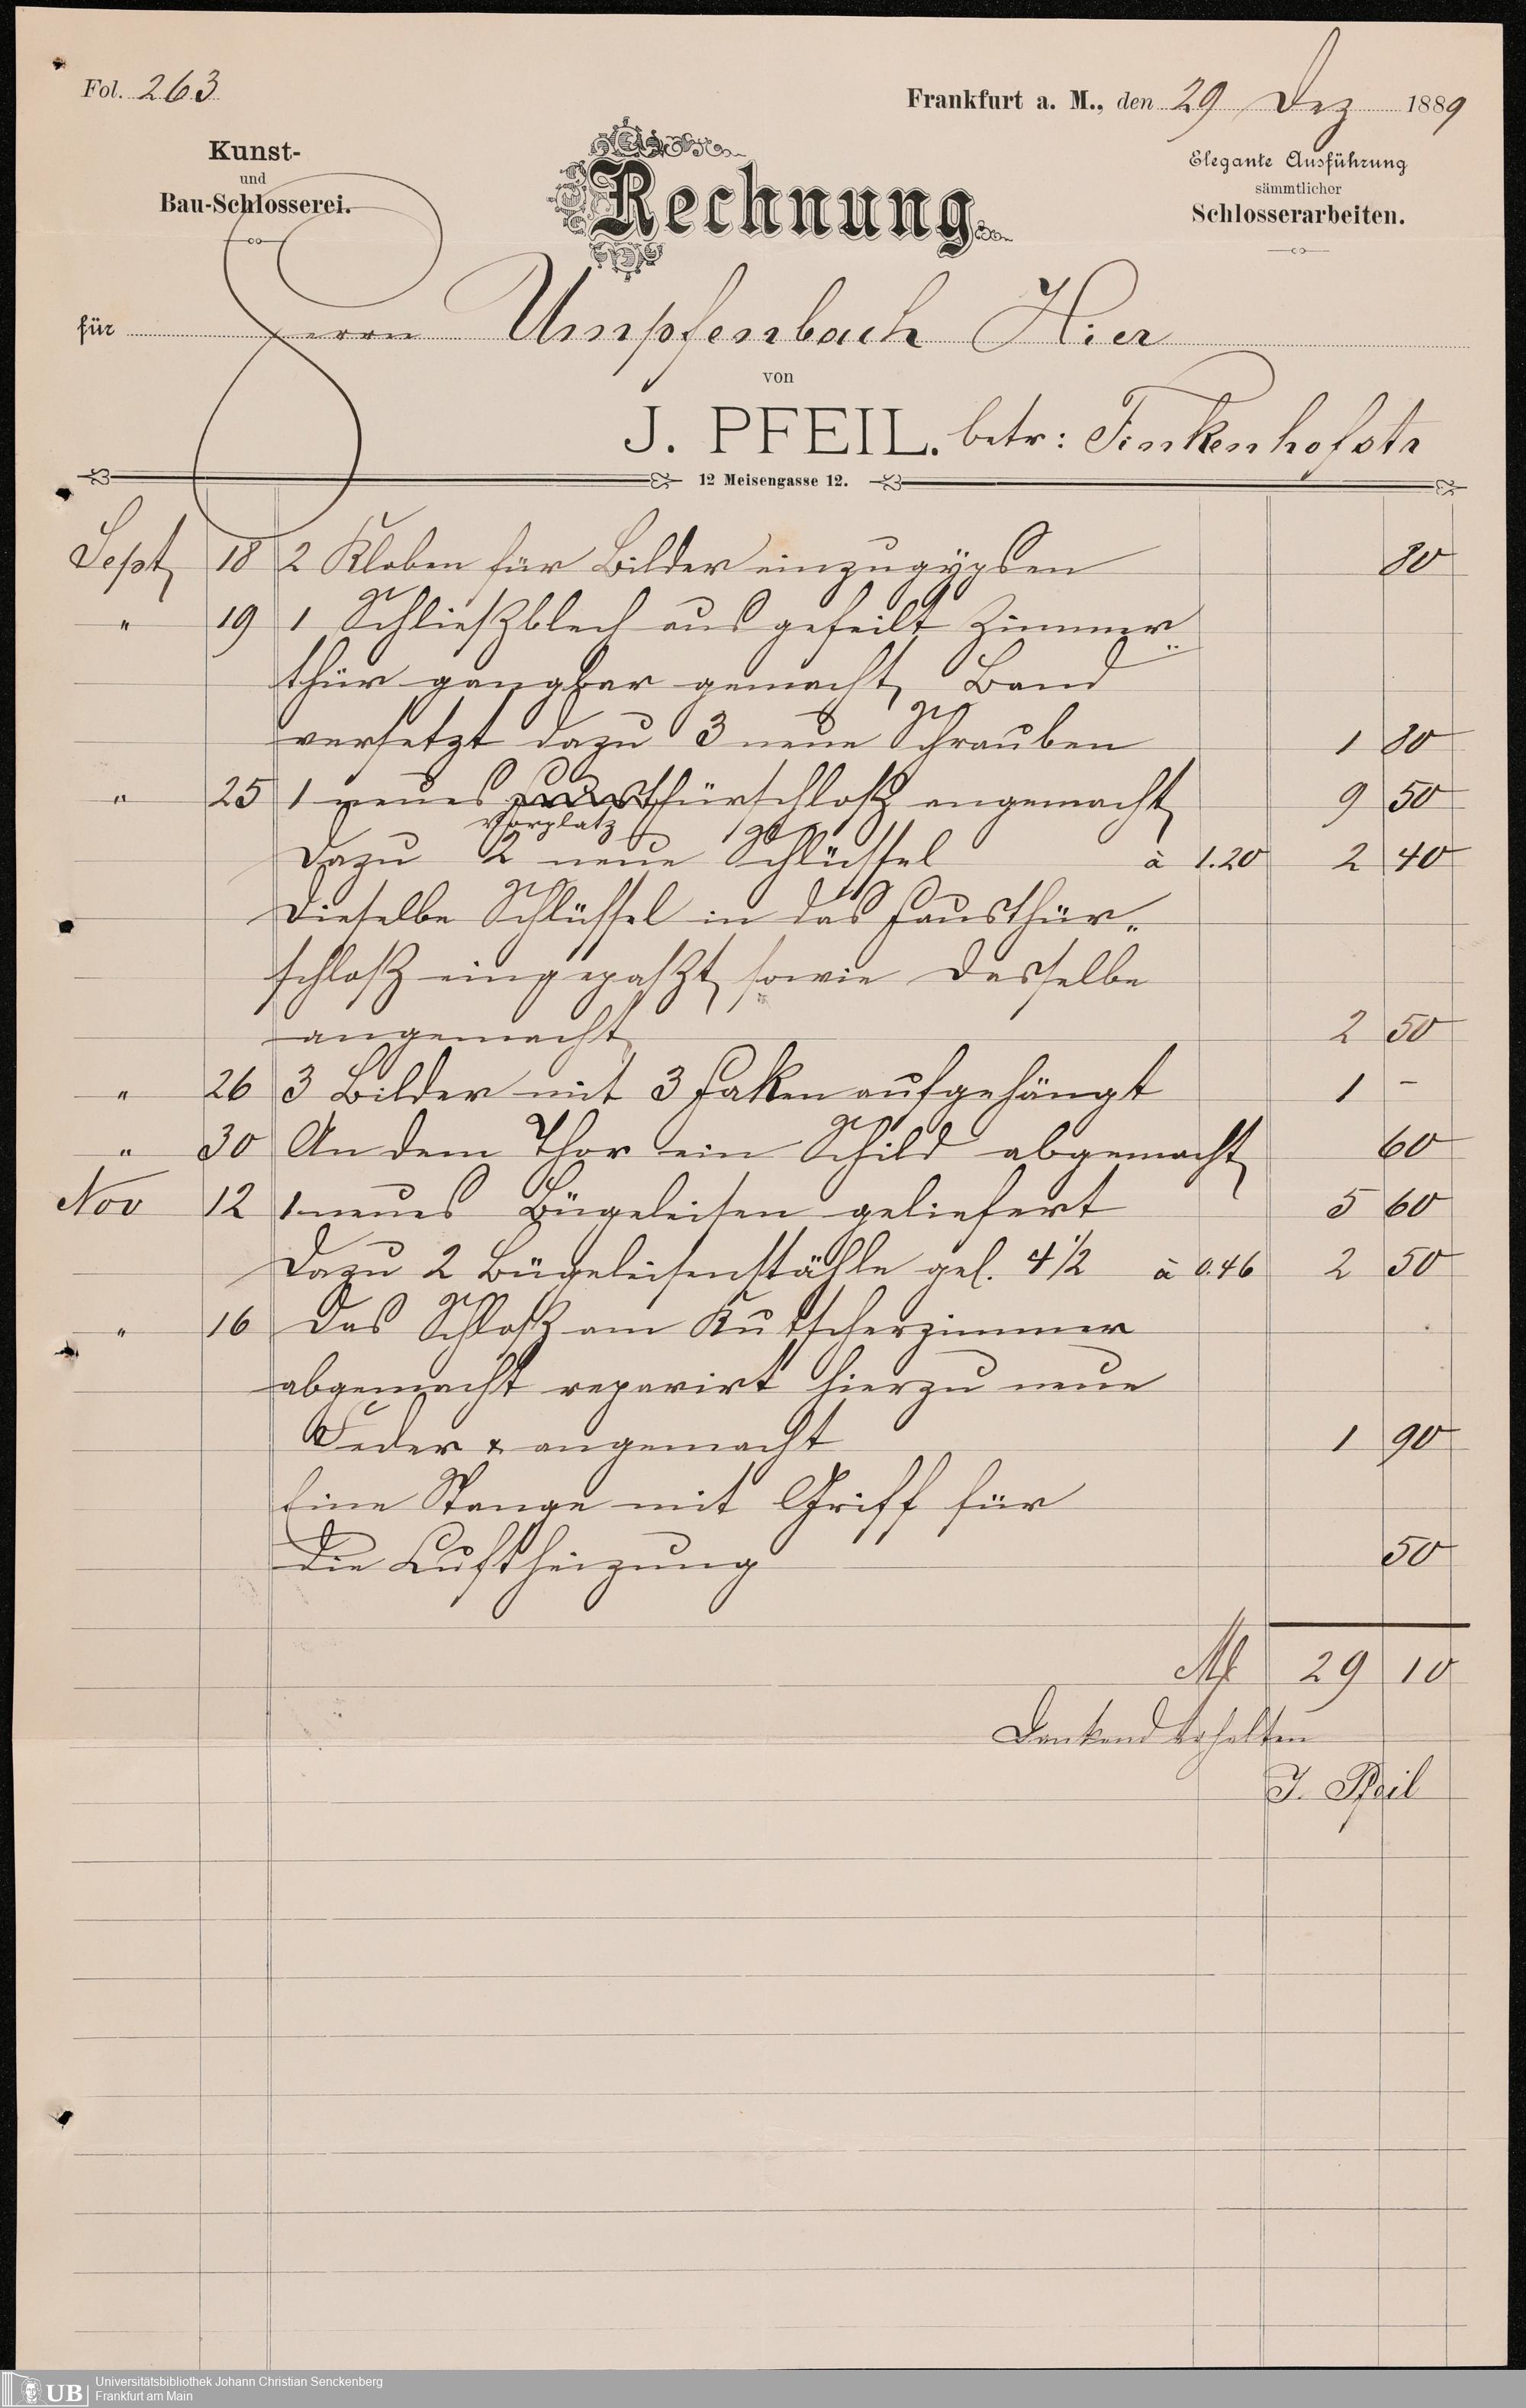 Fol. 263
Frankfurt a. M., den 29 Dez 1889
Kunst-
und
Bau-Schlosserei.
Rechnung
Elegante Ausführung
sämmtlicher
Schlosserarbeiten.
für Herrn Umpfenbach Hier
von
J. PFEIL. betr: Finkenhofstr
12 Meisengasse 12.
Sept 18 2 Kloben für Bilder einzugypsen 80
" 19 1 Schließblech aus gefeilt Zimmer-
thür gangbar gemacht, Band
versetzt dazu 3 neue Schrauben 1 80
" 25 1 neues Hausthürschloß angemacht 9 50
Vorplatz
Dazu 2 neue Schlüssel à 1.20 2 40
Dieselbe Schlüssel in das Hausthür-
schloß eingepaßt, sowie dasselbe
angemacht 2 50
" 26 3 Bilder mit 3 Haken aufgehängt 1 –
" 30 An dem Thor ein Schild abgemacht 60
Nov 12 1 neues Bügeleisen geliefert 5 60
Dazu 2 Bügeleisenstähle gel. 4 1/2 à 0.46 2 50
" 16 Das Schloß am Kutscherzimmer
abgemacht reparirt hierzu neue
Feder & angemacht 1 90
Eine Stange mit Griff für
die Luftheizung 50
M 29 10
Dankend erhalten
J. Pfeil
UB Universitätsbibliothek Johann Christian Senckenberg
Frankfurt am Main